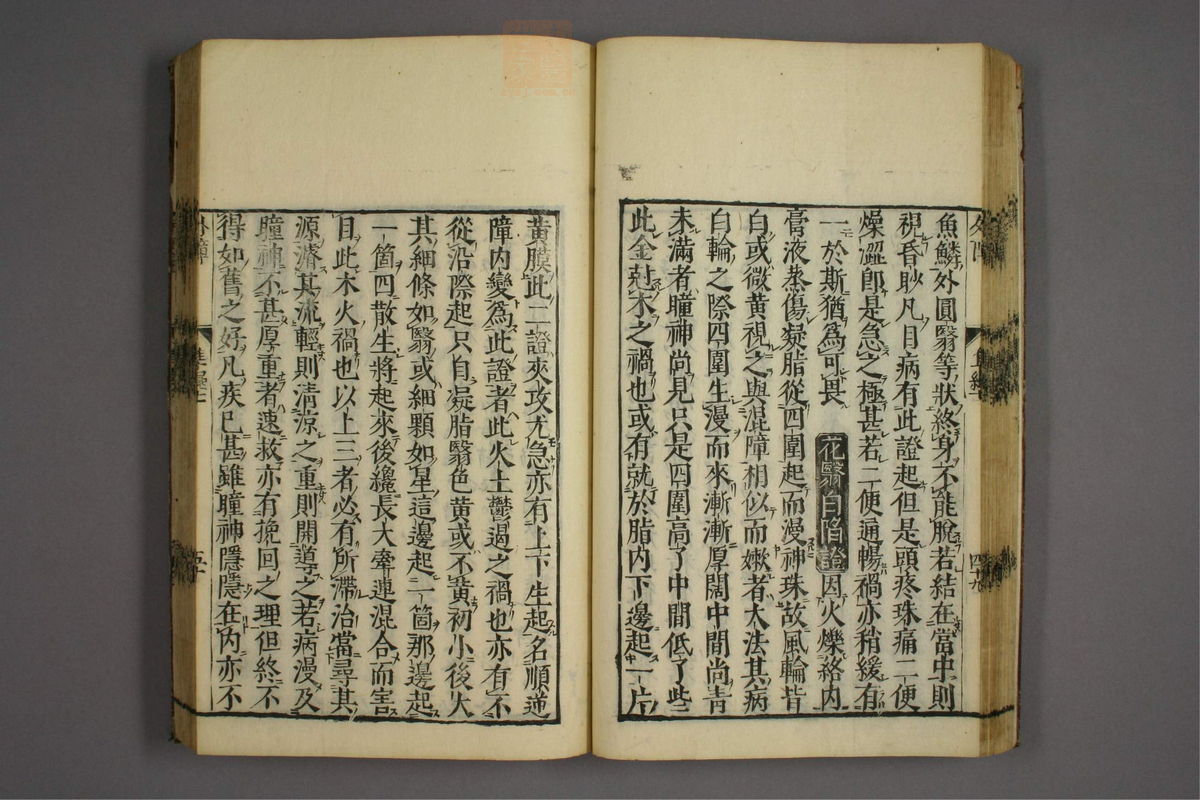 魚鱗外圓翳等狀終身不能脫若結在當中則
視昏眇凡目病有此證起但是頭疼珠痛二便
燥澀卽是急之極甚若二便通暢禍亦稍緩有
一於斯猶爲可畏 花翳白陷證 因火爍絡內
膏液蒸傷凝脂從四圍起而漫神珠故風輪皆
白或微黃視之與混障相似而嫩者大法其病
白輪之際四圍生漫而來漸漸厚闊中間尚靑
未滿者瞳神尚見只是四圍高了中間低了些
此金尅木之禍也或有就於脂內下邊起一片
四十九
黃膜此二證夾攻尤急亦有上下生起名順逆
障內變爲此證者此火土鬱遏之禍也亦有不
從沿際起只自凝脂翳色黃或不黃初小後大
其細條如翳或細顆如星這邊起一箇那邊起
一箇四散生將起來後纔長大牽連混合而害
目此木火禍也以上三者必有所滯治當尋其
源濬其流輕則清涼之重則開導之若病漫及
瞳神不甚厚重者速救亦有挽回之理但終不
得如舊之好凡疾已甚雖瞳神隱隱在內亦不
外障
五十